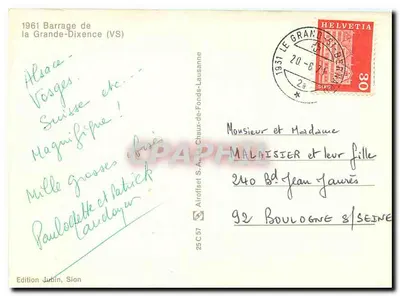 1961 Barrage de
la Grande-Dixence (VS)
Alsace -
Vosges -
Suisse etc...
Magnifique !
Mille grosses bises
Paulodette et Patrick
Edition Jubin, Sion
25 C 57 Alroffset S. A., La Chaux-de-Fonds-Lausanne
1931 LE GRAND-ST-BERNARD
20-6
2a
HELVETIA
30
Monsieur et Madame
MALAISIER et leur fille
240 Bd Jean Jaurès
92 BOULOGNE S/SEINE